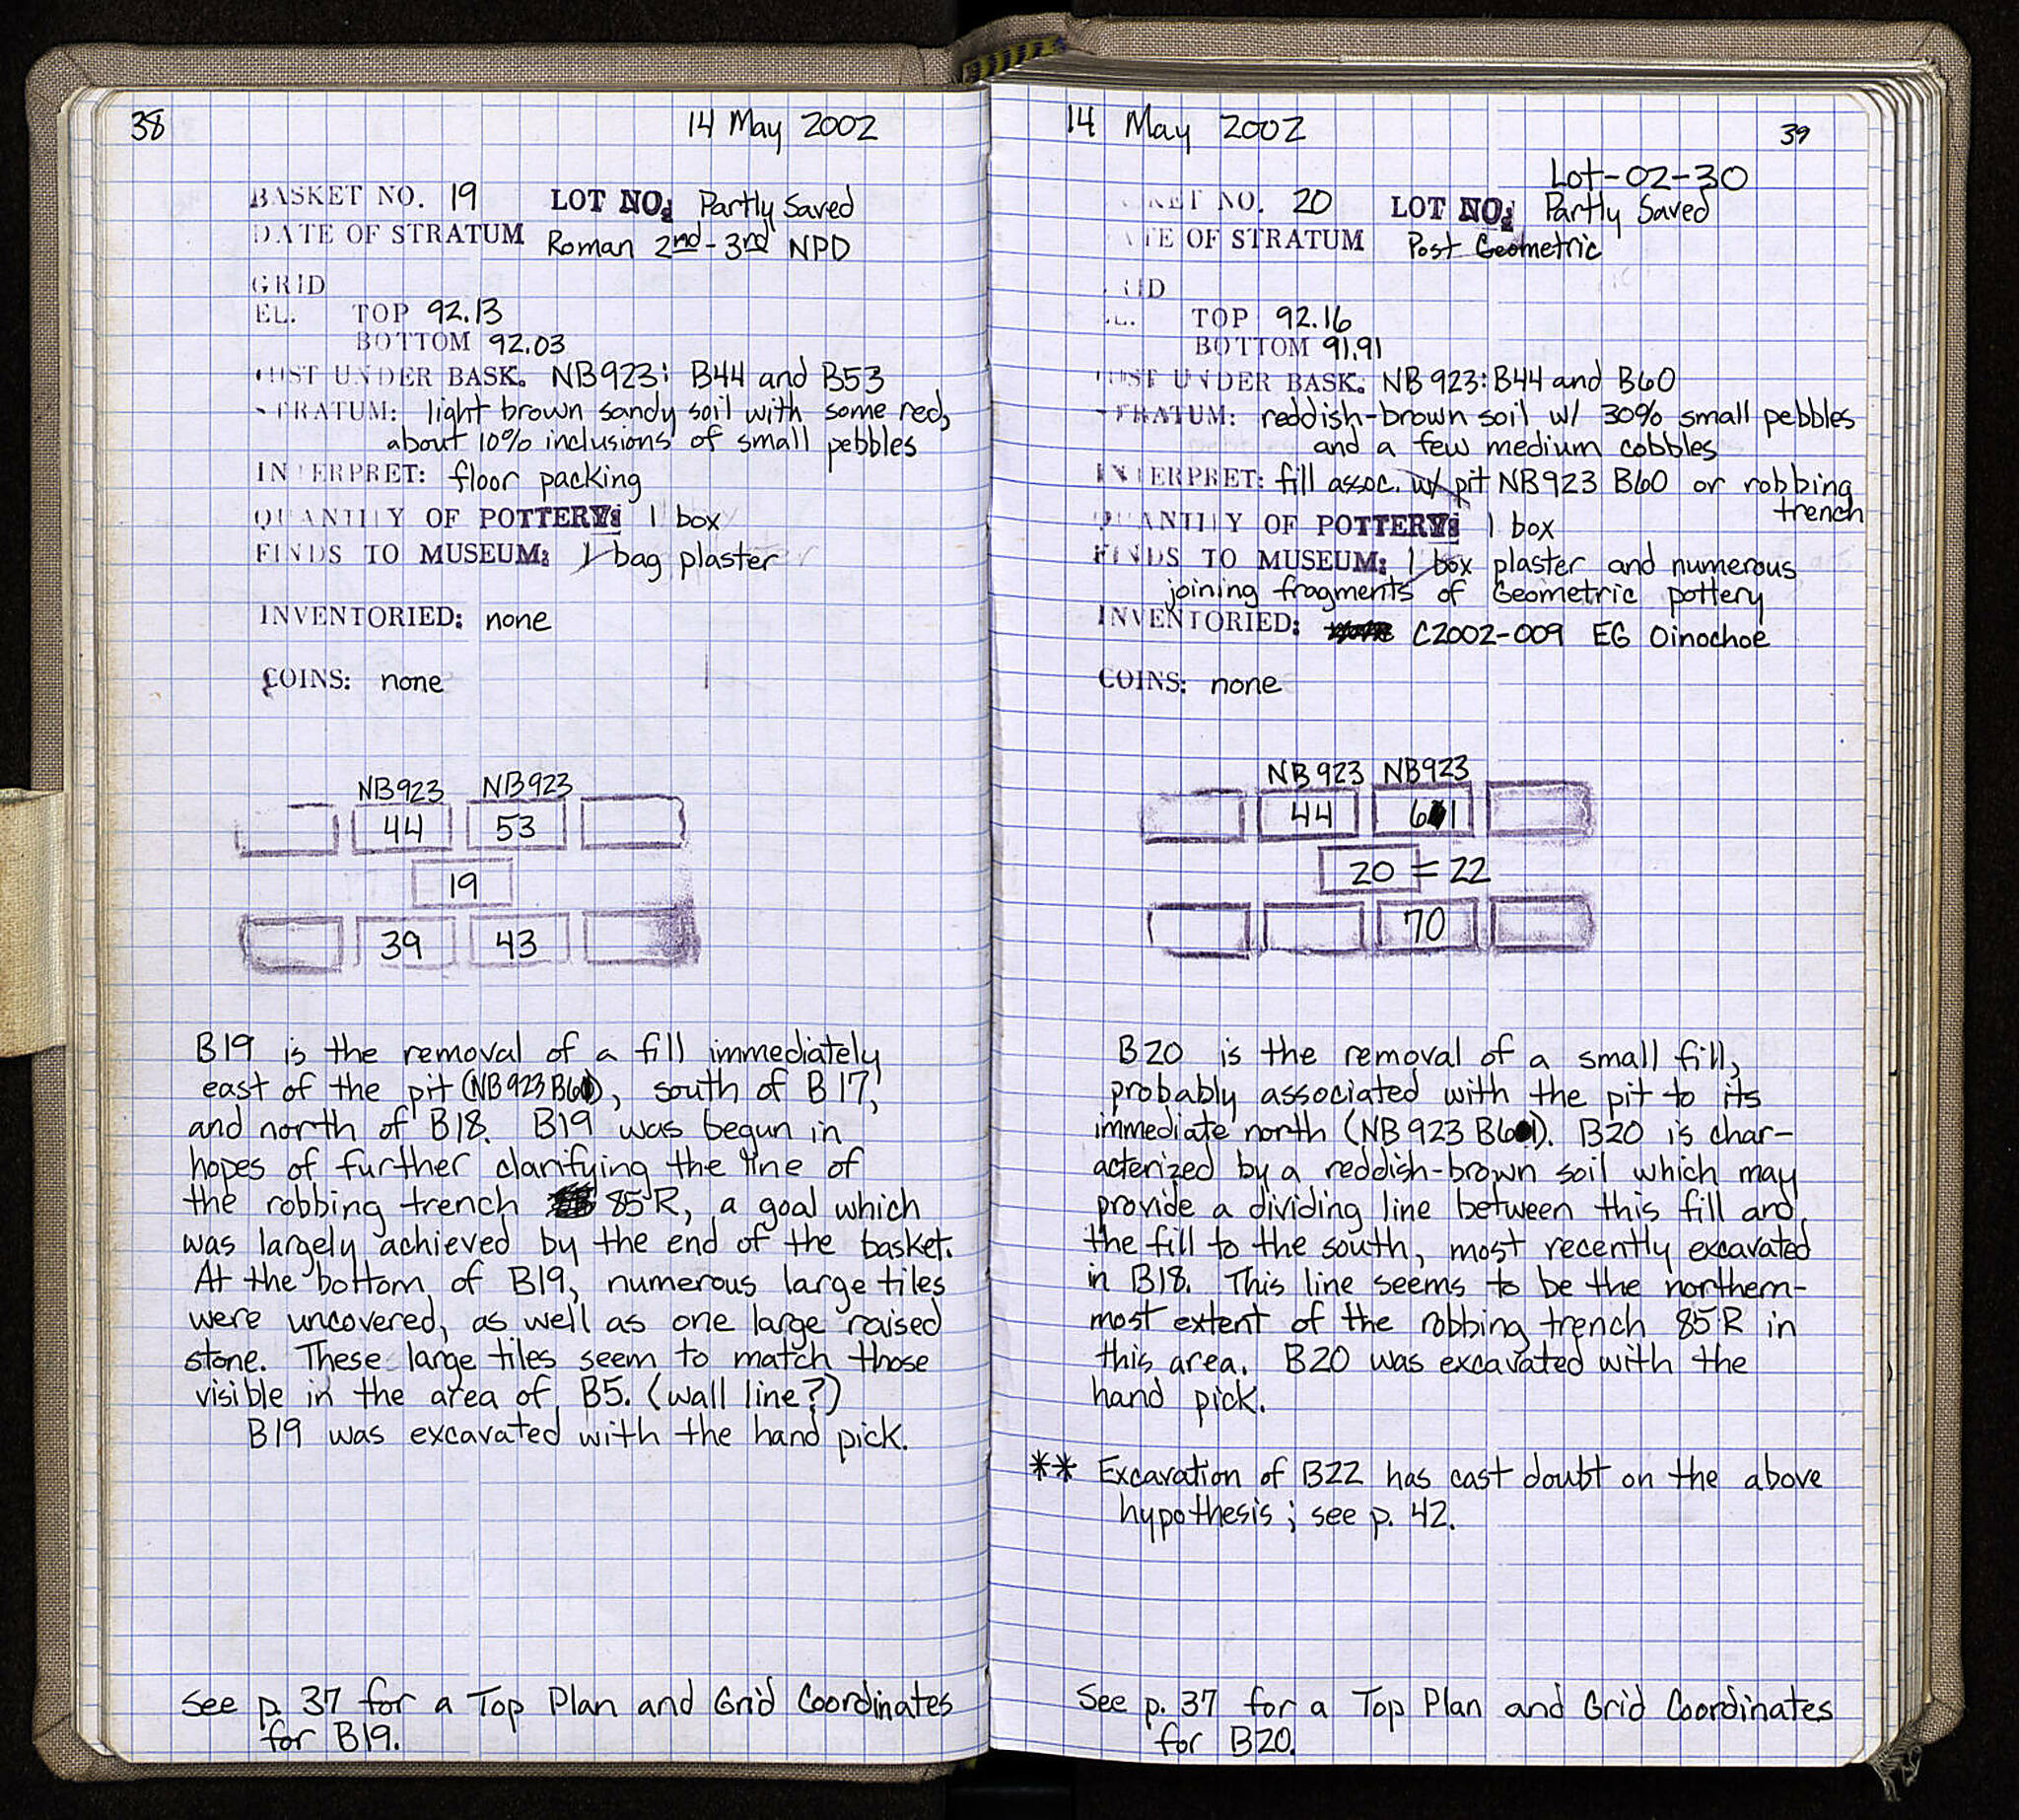 38
14 May 2002
BASKET NO. 19 LOT NO: Partly Saved
DATE OF STRATUM Roman 2nd-3rd NPD
GRID
EL. TOP 92.13
BOTTOM 92.03
JUST UNDER BASK. NB923: B44 and B53
STRATUM: light brown sandy soil with some red,
about 10% inclusions of small pebbles
INTERPRET: floor packing
QUANTITY OF POTTERY: 1 box
FINDS TO MUSEUM: 1 bag plaster
INVENTORIED: none
COINS: none
NB923 NB923
44 53
19
39 43
B19 is the removal of a fill immediately
east of the pit (NB923 B61), south of B17,
and north of B18. B19 was begun in
hopes of further clarifying the line of
the robbing trench 85R, a goal which
was largely achieved by the end of the basket.
At the bottom of B19, numerous large tiles
were uncovered, as well as one large raised
stone. These large tiles seem to match those
visible in the area of B5. (wall line?)
B19 was excavated with the hand pick.
See p. 37 for a Top Plan and Grid Coordinates
for B19.
14 May 2002
39
Lot-02-30
BASKET NO. 20 LOT NO: Partly Saved
DATE OF STRATUM Post Geometric
GRID
EL. TOP 92.16
BOTTOM 91.91
JUST UNDER BASK. NB923: B44 and B60
STRATUM: reddish-brown soil w/ 30% small pebbles
and a few medium cobbles
INTERPRET: fill assoc. w/ pit NB923 B60 or robbing
trench
QUANTITY OF POTTERY: 1 box
FINDS TO MUSEUM: 1 box plaster and numerous
joining fragments of Geometric pottery
INVENTORIED: C2002-009 EG Oinochoe
COINS: none
NB923 NB923
44 61
20 = 22
70
B20 is the removal of a small fill,
probably associated with the pit to its
immediate north (NB923 B61). B20 is char-
acterized by a reddish-brown soil which may
provide a dividing line between this fill and
the fill to the south, most recently excavated
in B18. This line seems to be the northern-
most extent of the robbing trench 85R in
this area. B20 was excavated with the
hand pick.
** Excavation of B22 has cast doubt on the above
hypothesis; see p. 42.
See p. 37 for a Top Plan and Grid Coordinates
for B20.